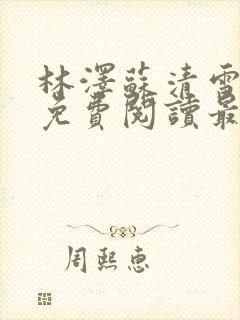 林澤蘇清雪
免費閱讀最
周熙惠